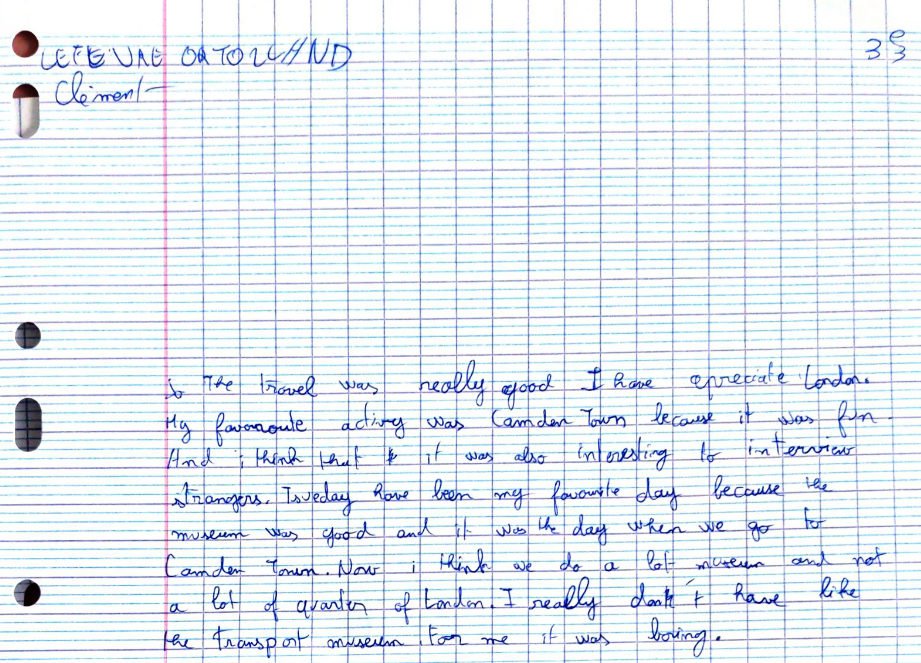 LEFEUVRE ORTOLAND
3e3
Clément
The travel was really good I have apreciate London.
My favoroute activy was Camden Town because it was fun.
And i think that it was also interesting to interview
strangers. Tsueday have been my favourite day because the
museum was good and it was the day when we go to
Camden Town. Now i think we do a lot museum and not
a lot of quarter of London. I really dont have like
the transport museum. For me it was boring.